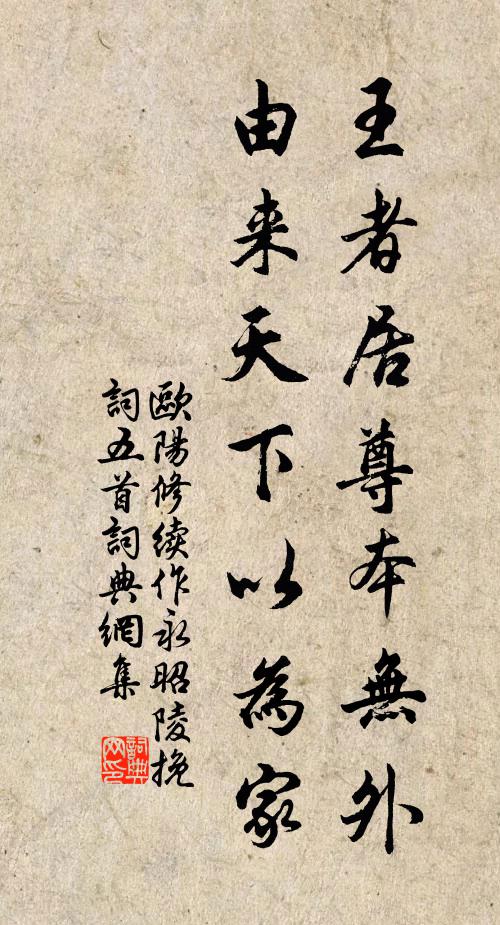 王者居尊本無外
由来天下以為家
歐陽修續作永昭陵挽
詞五首詞典網集
詞典
网印